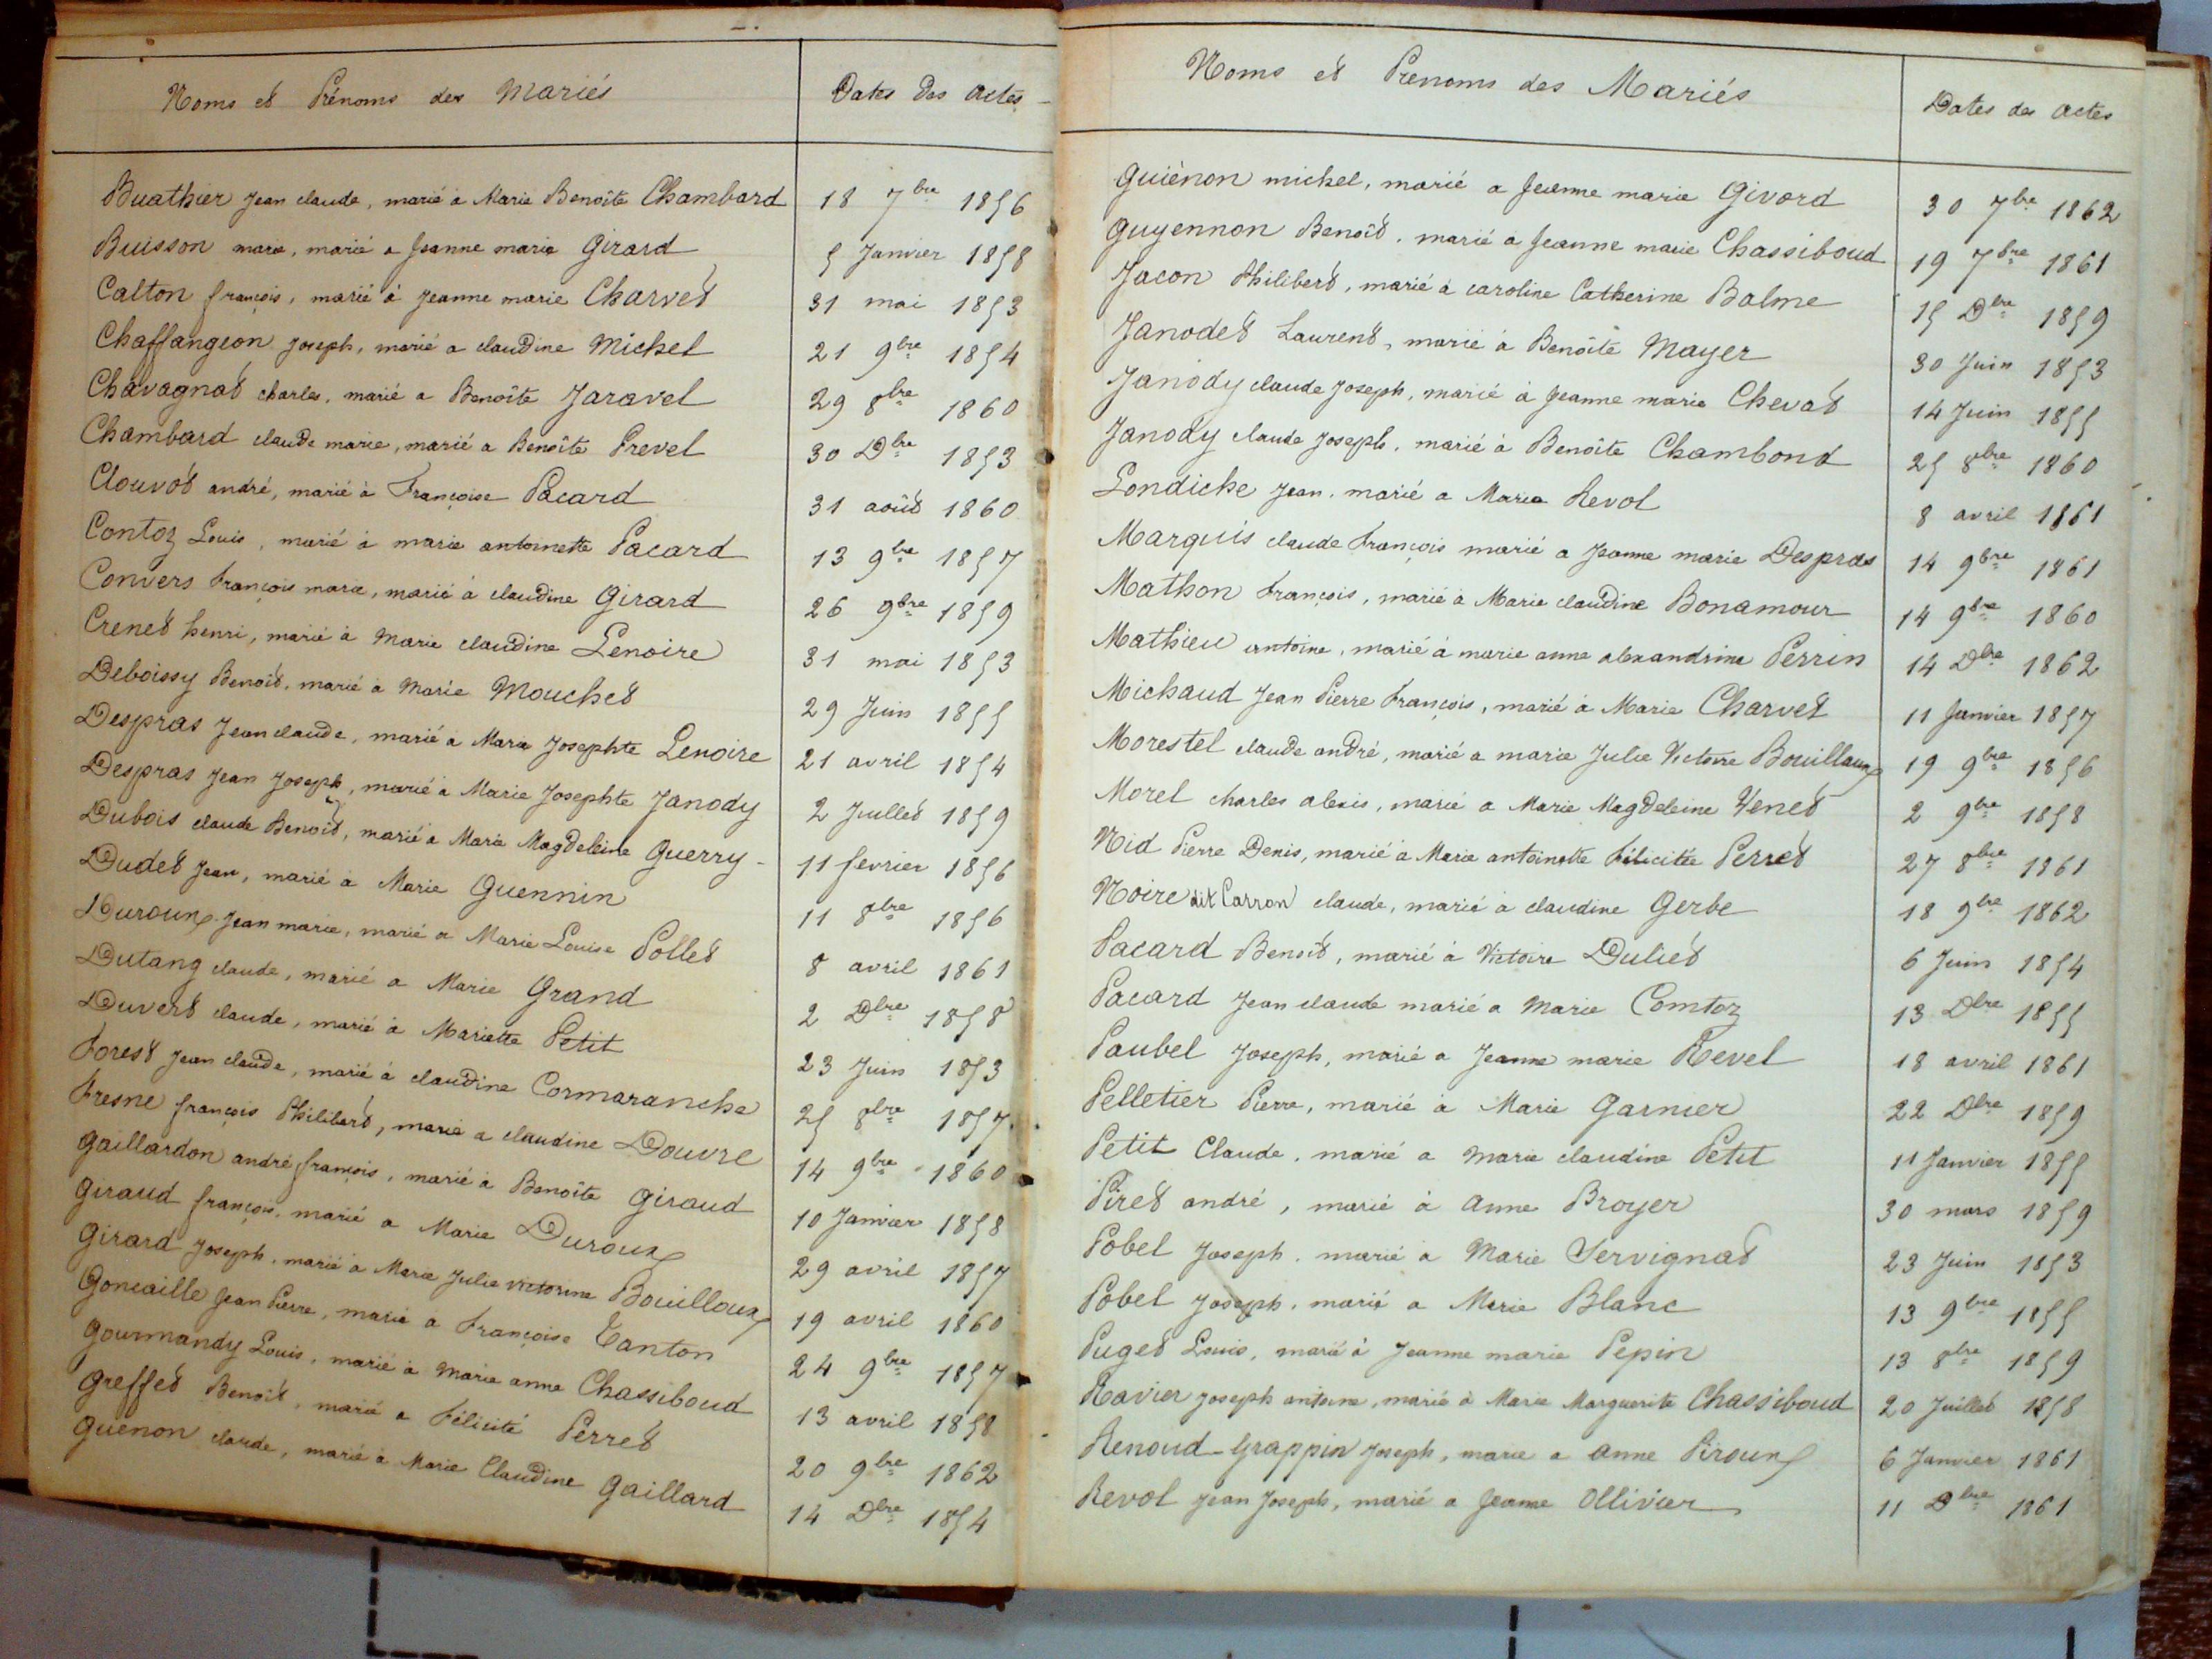 Noms et Prénoms des Mariés Dates des actes
Buathier Jean claude, marié à Marie Benoîte Chambard 18 7bre 1856
Buisson marie, marié a Jeanne marie Girard 5 Janvier 1858
Calton françois, marié à Jeanne marie Charvet 31 mai 1853
Chaffangeon Joseph, marié a claudine Michel 21 9bre 1854
Chavagnat charles, marié a Benoîte Jaravel 29 8bre 1860
Chambard claude marie, marié a Benoîte Prevel 30 Dbre 1853
Clouvot andré, marié à Françoise Pacard 31 août 1860
Contoz Louis, marié à marie antoinette Pacard 13 9bre 1857
Convers François marie, marié à claudine Girard 26 9bre 1859
Crenet henri, marié à Marie claudine Lenoire 31 mai 1853
Deboissy Benoit, marié à Marie Mouchet 29 Juin 1855
Despras Jean claude, marié à Marie Josephte Lenoire 21 avril 1854
Despras Jean Joseph, marié à Marie Josephte Janody 2 Juillet 1859
Dubois claude Benoit, marié à Marie Magdeleine Guerry - 11 fevrier 1856
Dudet Jean, marié à Marie Guennin 11 8bre 1856
Duroux Jean marie, marié a Marie Louise Pollet 8 avril 1861
Dutang claude, marié a Marie Grand 2 Dbre 1858
Duvert claude, marié à Mariette Petit 23 Juin 1853
Forest Jean claude, marié à claudine Cormaranche 25 8bre 1857
Fresne françois Philibert, marié a claudine Douvre 14 9bre 1860
Gaillardon andré françois, marié à Benoîte Giraud 10 Janvier 1858
Giraud françois, marié a Marie Duroux 29 avril 1857
Girard Joseph, marié à Marie Julie Victorine Bouilloux 19 avril 1860
Goncaille Jean Pierre, marié à Françoise Tanton 24 9bre 1857
Gourmandy Louis, marié à Marie anne Chassiboud 13 avril 1858
Greffet Benoit, marié a Félicité Perret 20 9bre 1862
Guenon claude, marié à Marie Claudine Gaillard 14 Dbre 1854
Noms et Prenoms des Mariés Dates des actes
Guiénon michel, marié a Jeanne marie Givord 30 7bre 1862
Guyennon Benoît, marié a Jeanne marie Chassiboud 19 7bre 1861
Jacon Philibert, marié à caroline Catherine Balme 15 Dbre 1859
Janodet Laurent, marié à Benoîte Mayer 30 Juin 1853
Janody claude Joseph, marié à Jeanne marie Chevat 14 Juin 1855
Janody claude Joseph, marié à Benoîte Chambond 25 8bre 1860
Londiche Jean, marié a Maria Revol 8 avril 1861
Marquis claude François marié a Jeanne marie Despras 14 9bre 1861
Mathon François, marié à Marie claudine Bonamour 14 9bre 1860
Mathieu antoine, marié à marie anne alexandrine Perrin 14 Dbre 1862
Michaud Jean Pierre François, marié à Marie Charvet 11 Janvier 1857
Morestel claude andré, marié a marie Julie Victoire Bouilloux 19 9bre 1856
Morel charles alexis, marié a Marie Magdeleine Venet 2 9bre 1858
Nid Pierre Denis, marié à Marie antoinette Félicitée Perret 27 8bre 1861
Noire dit Carron claude, marié à claudine Gerbe 18 9bre 1862
Pacard Benoit, marié à Victoire Duliet 6 Juin 1854
Pacard Jean claude marié a Marie Comtoz 13 Dbre 1855
Paubel Joseph, marié a Jeanne marie Revel 18 avril 1861
Pelletier Pierre, marié à Marie Garnier 22 Dbre 1859
Petit Claude, marié a Marie claudine Petit 11 Janvier 1855
Piret andré, marié à Anne Broyer 30 mars 1859
Pobel Joseph, marié à Marie Servignat 23 Juin 1853
Pobel Joseph, marié a Marie Blanc 13 9bre 1855
Puget Louis, marié à Jeanne marie Pepin 13 8bre 1859
Ravier Joseph antoine, marié à Marie Marguerite Chassiboud 20 Juillet 1858
Renoud-Grappin Joseph, marie a anne Piroux 6 Janvier 1861
Revol Jean Joseph, marié a Jeanne Ollivier 11 Dbre 1861